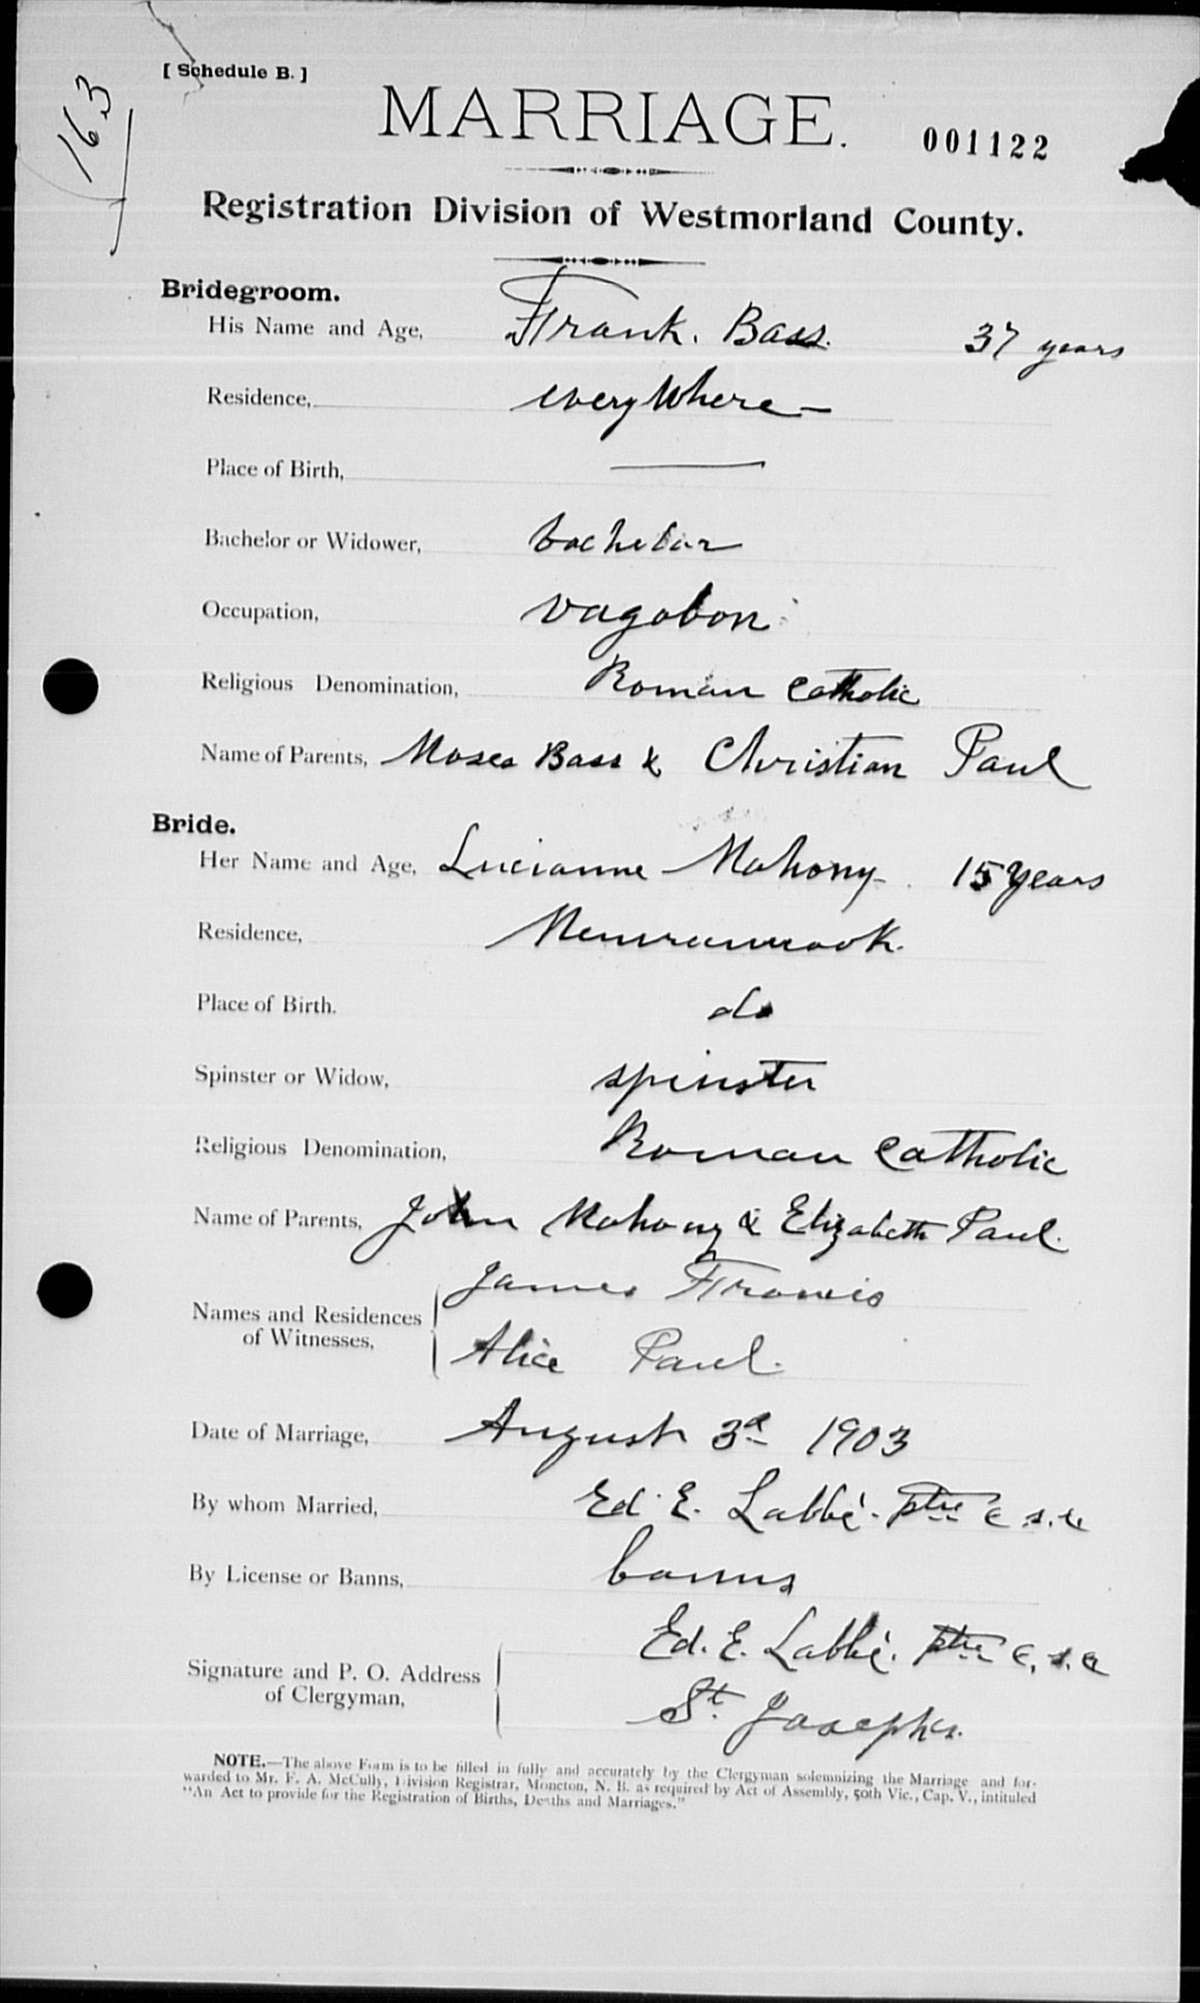 [ Schedule B. ]
163
MARRIAGE.
001122
Registration Division of Westmorland County.
Bridegroom.
His Name and Age, Frank. Bass. 37 years
Residence, everyWhere —
Place of Birth, —
Bachelor or Widower, bachelor
Occupation, vagobon
Religious Denomination, Roman Catholic
Name of Parents, Moses Bass & Christian Paul
Bride.
Her Name and Age, Lucianne Mahony 15 years
Residence, Memramcook.
Place of Birth. do
Spinster or Widow, spinster
Religious Denomination, Roman Catholic
Name of Parents, John Mahony & Elizabeth Paul.
Names and Residences
of Witnesses,
James Francis
Alice Paul.
Date of Marriage, August 3d 1903
By whom Married, Ed. E. Labbé. ptre c.s.c
By License or Banns, banns
Signature and P. O. Address
of Clergyman,
Ed. E. Labbé. ptre c.s.c
St. Josephs.
NOTE.—The above Form is to be filled in fully and accurately by the Clergyman solemnizing the Marriage and for-
warded to Mr. F. A. McCully, Division Registrar, Moncton, N. B. as required by Act of Assembly, 50th Vic., Cap. V., intituled
"An Act to provide for the Registration of Births, Deaths and Marriages."